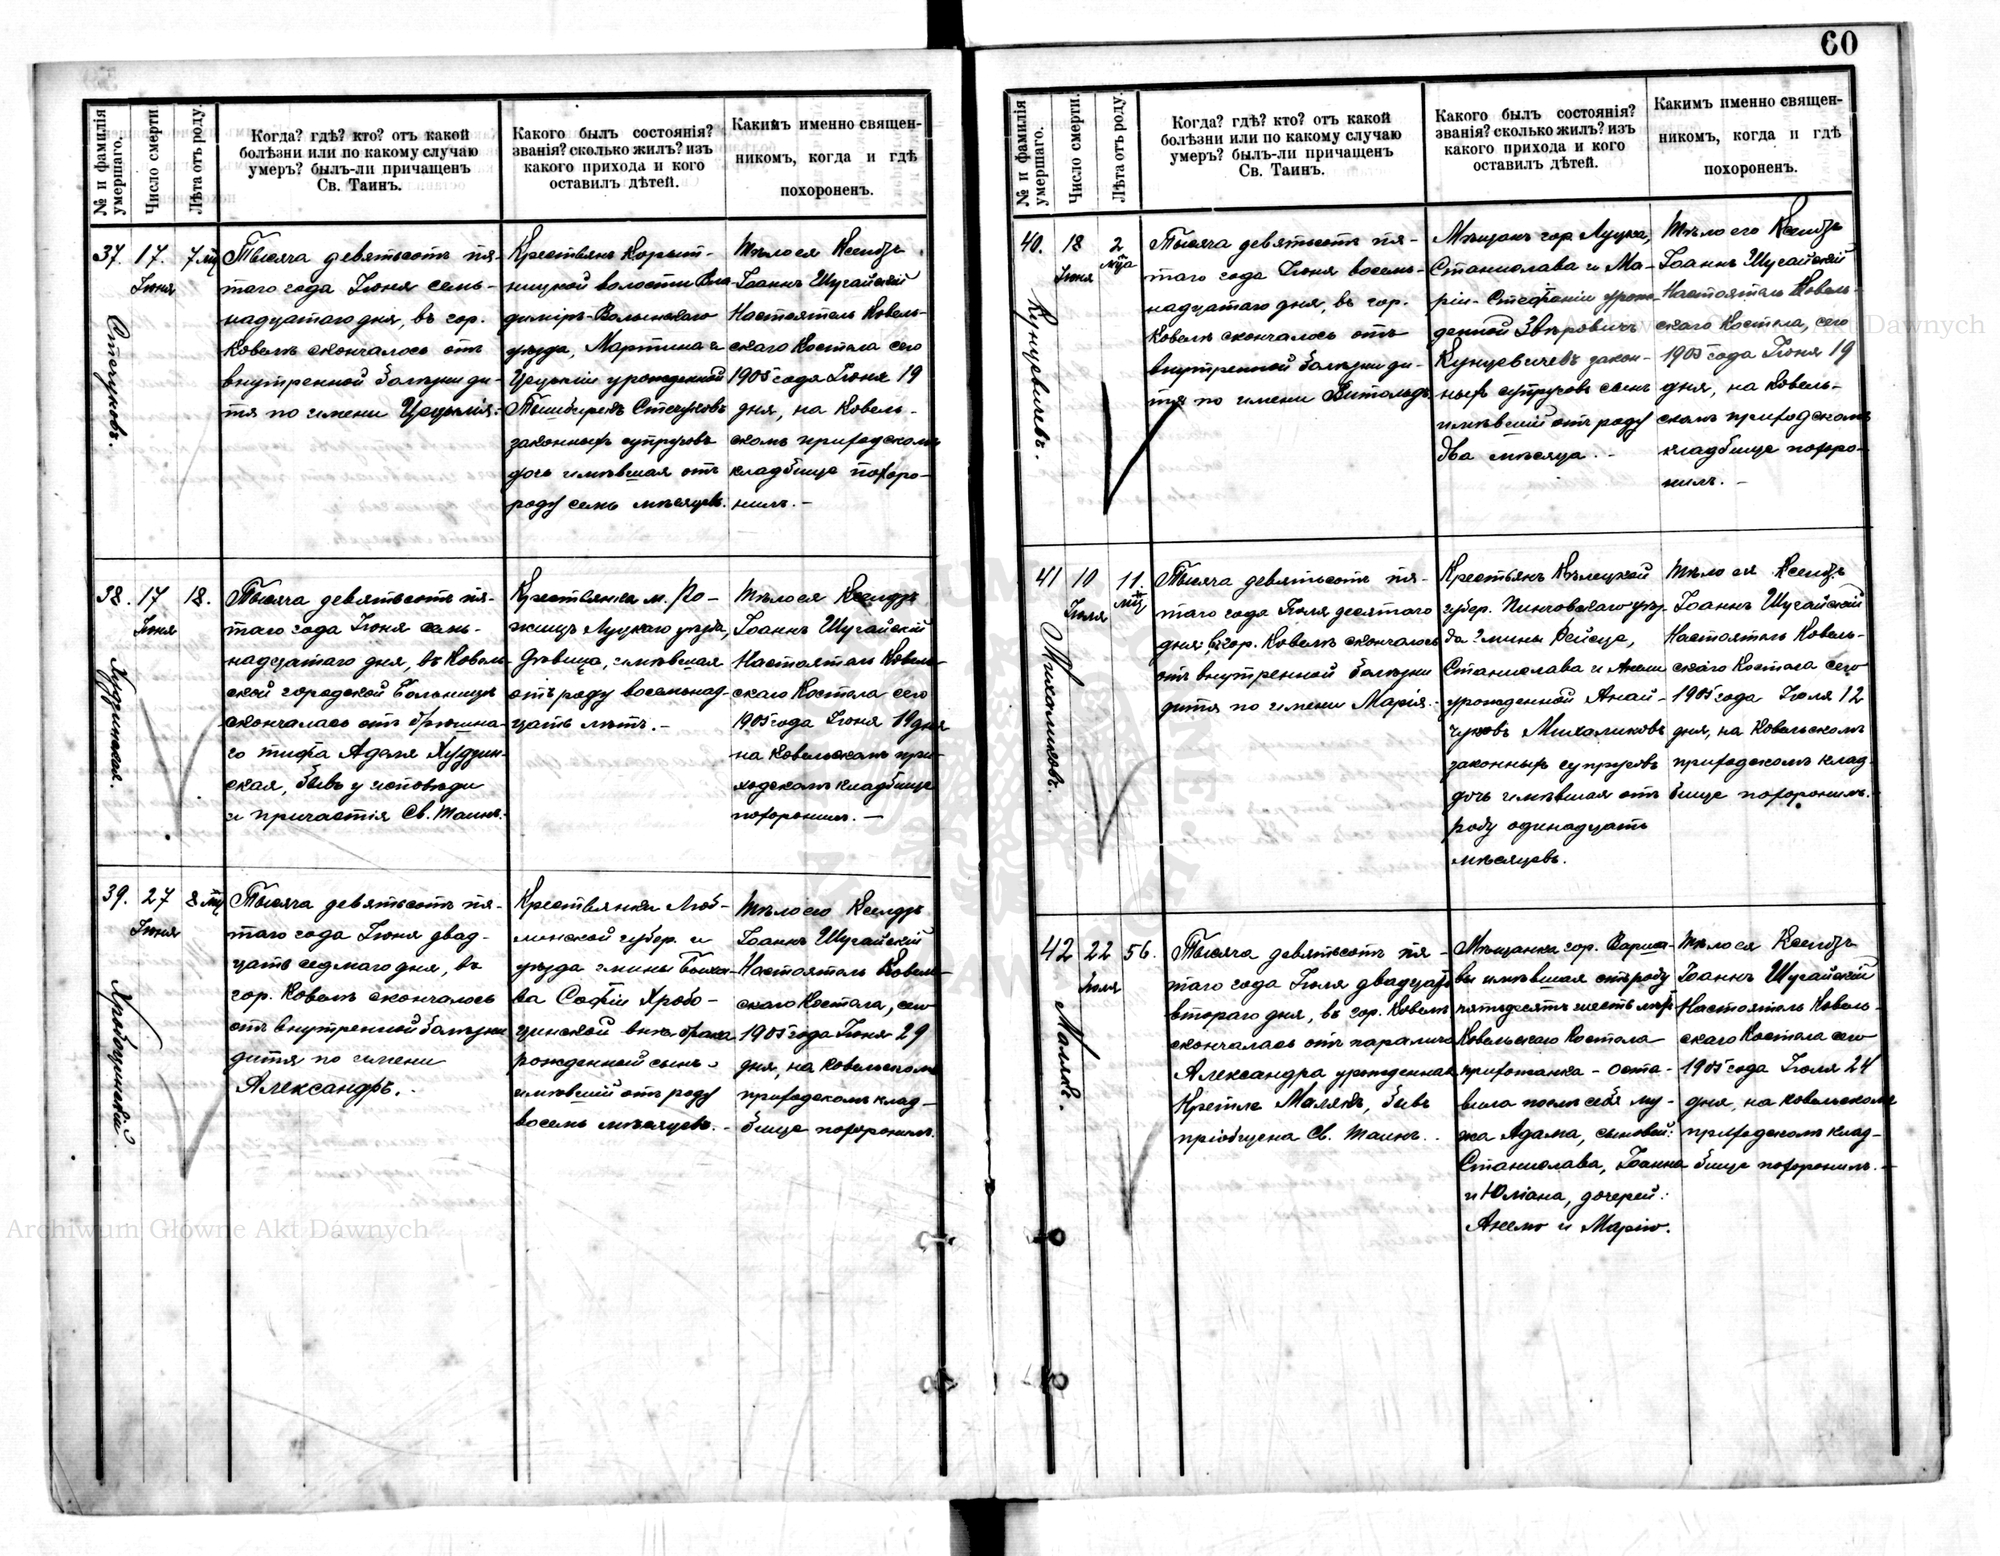 60
№ и фамилія умершаго.
Число смерти.
Лѣта отъ роду.
Когда? гдѣ? кто? отъ какой
болѣзни или по какому случаю
умеръ? былъ-ли причащенъ
Св. Таинъ.
Какого былъ состоянія?
званія? сколько жилъ? изъ
какого прихода и кого
оставилъ дѣтей.
Какимъ именно священ-
никомъ, когда и гдѣ
похороненъ.
37.
17.
Іюня
7 мц
Стецуковъ.
Тысяча девятьсотъ пя-
таго года Іюня семь-
надцатаго дня, въ гор.
Ковелѣ скончалось отъ
внутренной болѣзни ди-
тя по имени Цецылія.
Крестьянъ Корыт-
ницкой волости Вла-
диміръ-Волынскаго
уѣзда, Мартина и
Цецыліи урожденной
Стецуковъ
законныхъ супруговъ
дочь имѣвшая отъ
роду семь мѣсяцевъ.
Тѣло ея Ксендзъ
Іоаннъ Шугайскій
Настоятель Ковель-
скаго Костела сего
1905 года Іюня 19
дня, на Ковель-
скомъ приходскомъ
кладбище похоро-
нилъ. –
38.
17
Іюня
18.
Худзинская.
Тысяча девятьсотъ пя-
таго года Іюня семь-
надцатаго дня, въ Ковель-
ской городской Больницѣ
скончалась отъ брюшна-
го тифа Адаля Худзин-
ская, бывъ у исповѣди
и причастія Св. Таинъ.
Крестьянка м. Ро-
жищъ Луцкаго уѣзда,
Дѣвица, имѣвшая
отъ роду восемьнад-
цать лѣтъ. –
Тѣло ея Ксендзъ
Іоаннъ Шугайскій
Настоятель Ковель-
скаго Костела сего
1905 года Іюня 19 дня
на Ковельскомъ при-
ходскомъ кладбище
похоронилъ. –
39.
27
Іюня
8 мц
Хробоцинскій.
Тысяча девятьсотъ пя-
таго года Іюня двад-
цать седмаго дня, въ
гор. Ковелѣ скончалось
отъ внутренной болѣзни
дитя по имени
Александръ.
Крестьянки Люб-
линской губер. и
уѣзда гмины
Софіи Хробо-
цинской внѣ брака
рожденный сынъ
имѣвшій отъ роду
восемь мѣсяцевъ. –
Тѣло его Ксендзъ
Іоаннъ Шугайскій
Настоятель Ковель-
скаго Костела, сего
1905 года Іюня 29
дня, на Ковельскомъ
приходскомъ клад-
бище похоронилъ.
№ и фамилія умершаго.
Число смерти.
Лѣта отъ роду.
Когда? гдѣ? кто? отъ какой
болѣзни или по какому случаю
умеръ? былъ-ли причащенъ
Св. Таинъ.
Какого былъ состоянія?
званія? сколько жилъ? изъ
какого прихода и кого
оставилъ дѣтей.
Какимъ именно священ-
никомъ, когда и гдѣ
похороненъ.
40.
18
Іюня
2
мца
Кунцевичевъ.
Тысяча девятьсотъ пя-
таго года Іюня восемь-
надцатаго дня, въ гор.
Ковелѣ скончалось отъ
внутренной болѣзни ди-
тя по имени Витольдъ
Мѣщанъ гор. Луцка,
Станислава и Ма-
ріи-Стефаніи урож-
денной Звѣровичъ
Кунцевичевъ закон-
ныхъ супруговъ сынъ
имѣвшій отъ роду
два мѣсяца. –
Тѣло его Ксендзъ
Іоаннъ Шугайскій
Настоятель Ковель-
скаго Костела, сего
1905 года Іюня 19
дня, на Ковель-
скомъ приходскомъ
кладбище похоро-
нилъ. –
41
10
Іюля
11.
мц
Михаликовъ.
Тысяча девятьсотъ пя-
таго года Іюля десятаго
дня въ гор. Ковелѣ скончалось
отъ внутренной болѣзни
дитя по имени Марія.
Крестьянъ Кѣлецкой
губер. Пинчовскаго уѣз-
да гмины
Станислава и
урожденной
Михаликовъ
законныхъ супруговъ
дочь имѣвшая отъ
роду одинадцать
мѣсяцевъ.
Тѣло ея Ксендзъ
Іоаннъ Шугайскій
Настоятель Ковель-
скаго Костела сего
1905 года Іюля 12
дня, на Ковельскомъ
приходскомъ клад-
бище похоронилъ.
42
22
Іюля
56.
Малякъ.
Тысяча девятьсотъ пя-
таго года Іюля двадцать
втораго дня, въ гор. Ковелѣ
скончалась отъ паралича
Александра урожденная
Малякъ, бывъ
пріобщена Св. Таинъ.
Мѣщанка гор. Варша-
вы имѣвшая отъ роду
пятьдесятъ шесть лѣтъ
Ковельскаго Костела
прихожанка – оста-
вила послѣ себя му-
жа Адама, сыновей:
Станислава, Іоанна
и Юліана, дочерей:
и Марію.
Тѣло ея Ксендзъ
Іоаннъ Шугайскій
Настоятель Ковель-
скаго Костела сего
1905 года Іюля 24
дня, на Ковельскомъ
приходскомъ клад-
бище похоронилъ. –
Archiwum Główne Akt Dawnych
Archiwum Główne Akt Dawnych